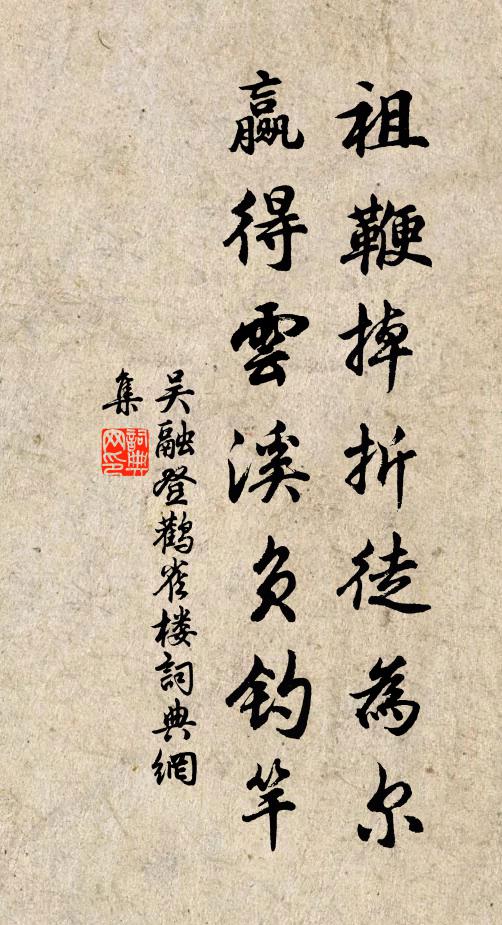 祖鞭掉折徒為尔
贏得雲溪負釣竿
吴融登鸛雀楼詞典網
集
詞典网印